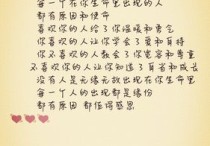 每一个在你生命里出现的人
都有原因和使命
喜欢你的人给了你温暖和勇气
你喜欢的人让你学会了爱和自持
你不喜欢的人教会了你宽容和尊重
不喜欢你的人让你知道了自省和成长
没有人是无缘无故出现在你生命里
每一个人的出现都是缘份
都有原因 都值得感恩